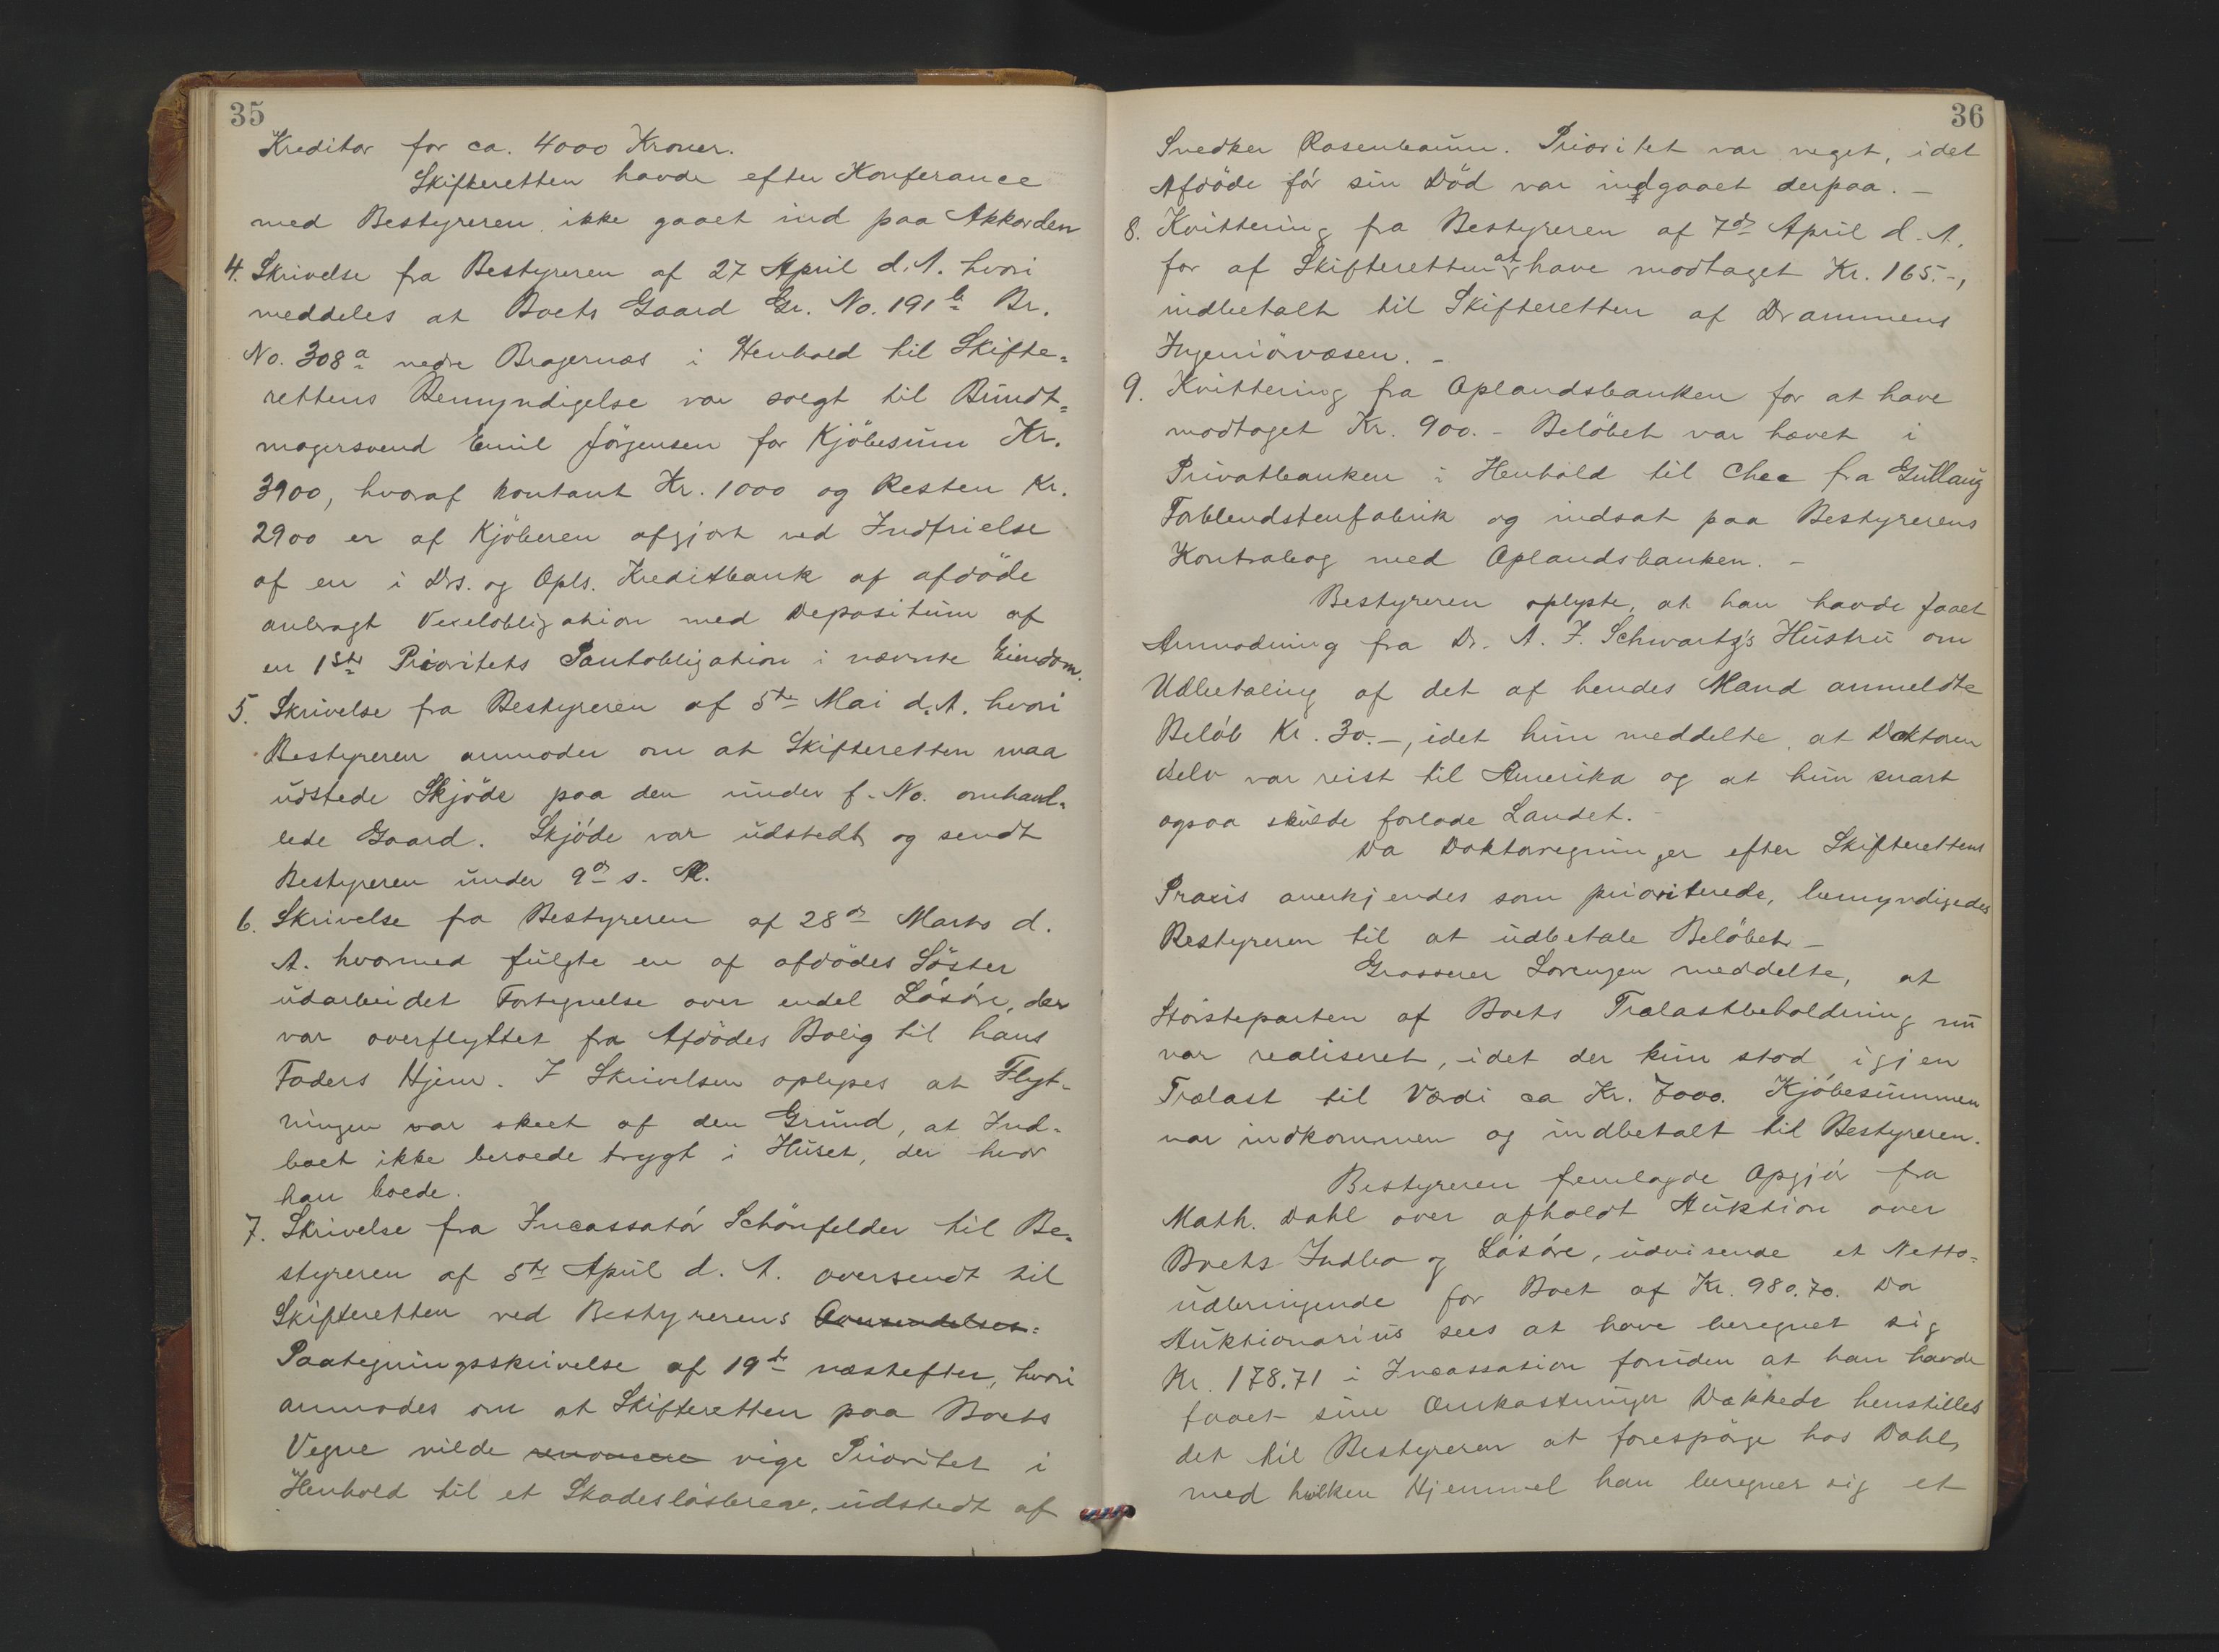 35
Kreditor for ca. 4000 Kroner.
Skifteretten havde efter Konferance
med Bestyreren ikke gaaet ind paa Akkorden
4. Skrivelse fra Bestyreren af 27 April d. A. hvori
meddeles at Boets Gaard Gr. No. 191 b Br.
No. 308 a nedre Bragernæs i Henhold til Skifte=
rettens Bemyndigelse var solgt til Bundt=
magersvend Emil Jörgensen for Kjöbesum Kr.
3900, hvoraf kontant Kr. 1000 og Resten Kr.
2900 er af Kjöberen afgjort ved Indfrielse
af en i Drs. og Opls. Kreditbank af afdöde
anbragt Vexelobligation med Depositum af
en 1ste Prioritets Pantobligation i nævnte Eiendom.
5. Skrivelse fra Bestyreren af 5te Mai d. A. hvori
Bestyreren anmoder om at Skifteretten maa
udstede Skjöde paa den under f. No. omhand=
lede Gaard. Skjöde var udstedt og sendt
Bestyreren under 9de s. M.
6. Skrivelse fra Bestyreren af 28de Marts d.
A. hvormed fulgte en af afdödes Söster
udarbeidet Fortegnelse over endel Lösöre, der
var overflyttet fra Afdödes Bolig til hans
Faders Hjem. I Skrivelsen oplyses at Flyt=
ningen var skeet af den Grund, at Ind=
boet ikke beroede trygt i Huset, der hvor
han boede.
7. Skrivelse fra Incassatör Schönfelder til Be=
styreren af 5te April d. A. oversendt til
Skifteretten ved Bestyrerens Oversendelses=
Paategningsskrivelse af 19de næstefter, hvori
anmodes om at Skifteretten paa Boets
Vegne vilde renoncere vige Prioritet i
Henhold til et Skadeslösbrev, udstedt af
36
Snedker Rosenbaum. Prioritet var veget, idet
Afdöde för sin Död var indgaaet derpaa. –
8. Kvittering fra Bestyreren af 7de April d. A.
for af Skifteretten at have modtaget Kr. 165.-,
indbetalt til Skifteretten af Drammens
Ingeniörvæsen. –
9. Kvittering fra Oplandsbanken for at have
modtaget Kr. 900.- Belöbet var hævet i
Privatbanken i Henhold til Chec fra Gullaug
Forblendstenfabrik og indsat paa Bestyrerens
Kontrabog med Oplandsbanken. –
Bestyreren oplyste, at han havde faaet
Anmodning fra Dr. A. F. Schwartz's Hustru om
Udbetaling af det af hendes Mand anmeldte
Belöb Kr. 30.-, idet hun meddelte, at Doktoren
selv var reist til Amerika og at hun snart
ogsaa skulde forlade Landet. –
Da Doktorregninger efter Skifterettens
Praxis anerkjendes som prioriterede, bemyndigedes
Bestyreren til at udbetale Belöbet –
Grosserer Lorenzen meddelte, at
Störsteparten af Boets Trælastbeholdning nu
var realiseret, idet der kun stod igjen
Trælast til Værdi ca Kr. 7000. Kjöbesummen
var indkommen og indbetalt til Bestyreren.
Bestyreren fremlagde Opgjör fra
Math. Dahl over afholdt Auktion over
Boets Indbo og Lösöre, udvisende et Netto=
udbringende for Boet af Kr. 980.70. Da
Auktionarius sees at have beregnet sig
Kr. 178.71 i Incassation foruden at han havde
faaet sine Omkostninger Dækkede henstilles
det til Bestyreren at forespörge hos Dahl,
med hvilken Hjemmel han beregner sig et